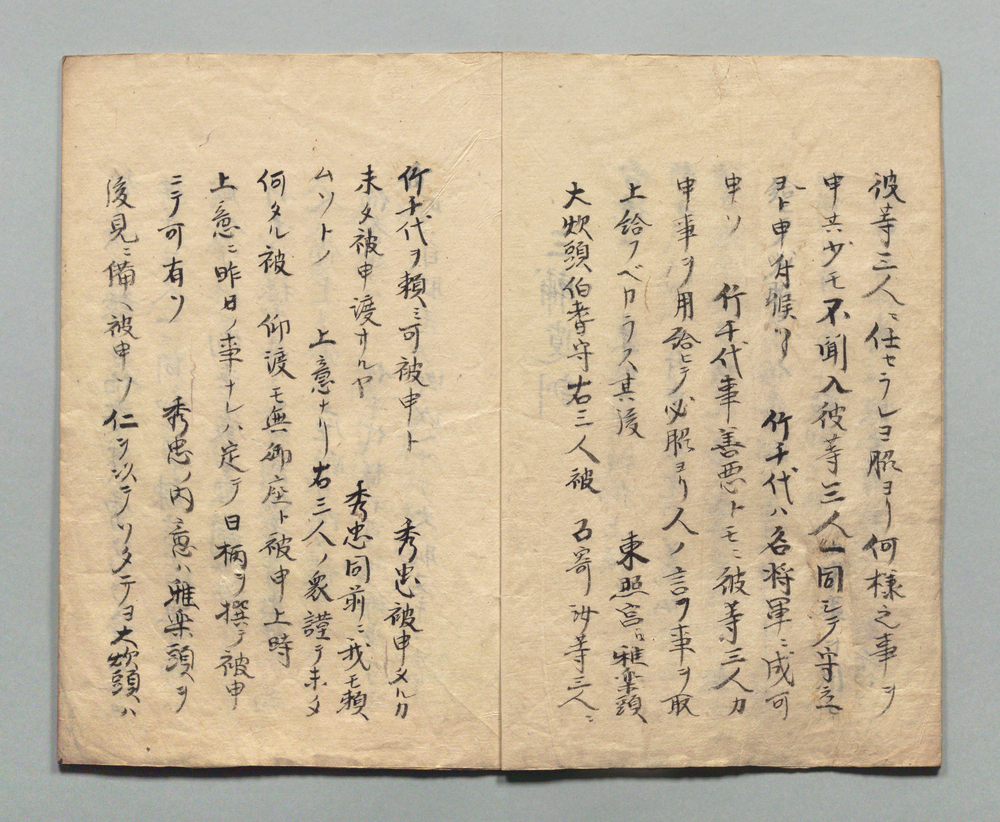 彼等三人ニ仕セラレヨ脇ヨリ何様之事ヲ
申共少モ不聞入彼等三人一同シテ守立
ヨト申付候ソ 竹千代ハ名将軍ニ成可
申ソ 竹千代事善悪トモニ彼等三人カ
申事ヲ用給ヒテ必脇ヨリ人ノ言フ事ヲ取
上給フベカラス其後 東照宮ゟ雅楽頭
大炊頭伯耆守右三人被 召寄汝等三人ニ
竹千代ヲ頼ミ可被申ト 秀忠被申タルカ
未タ被申渡サルヤ 秀忠同前ニ我モ頼
ムソトノ 上意ナリ右三人ノ衆謹テ未タ
何タル被 仰渡モ無御座ト被申上時
上意ニ昨日ノ事ナレハ定テ日柄ヲ撰テ被申
ニテ可有ソ 秀忠ノ内意ハ雅楽頭ヲ
後見ニ備ヘ被申ソ仁ヲ以テソタテヨ大炊頭ハ